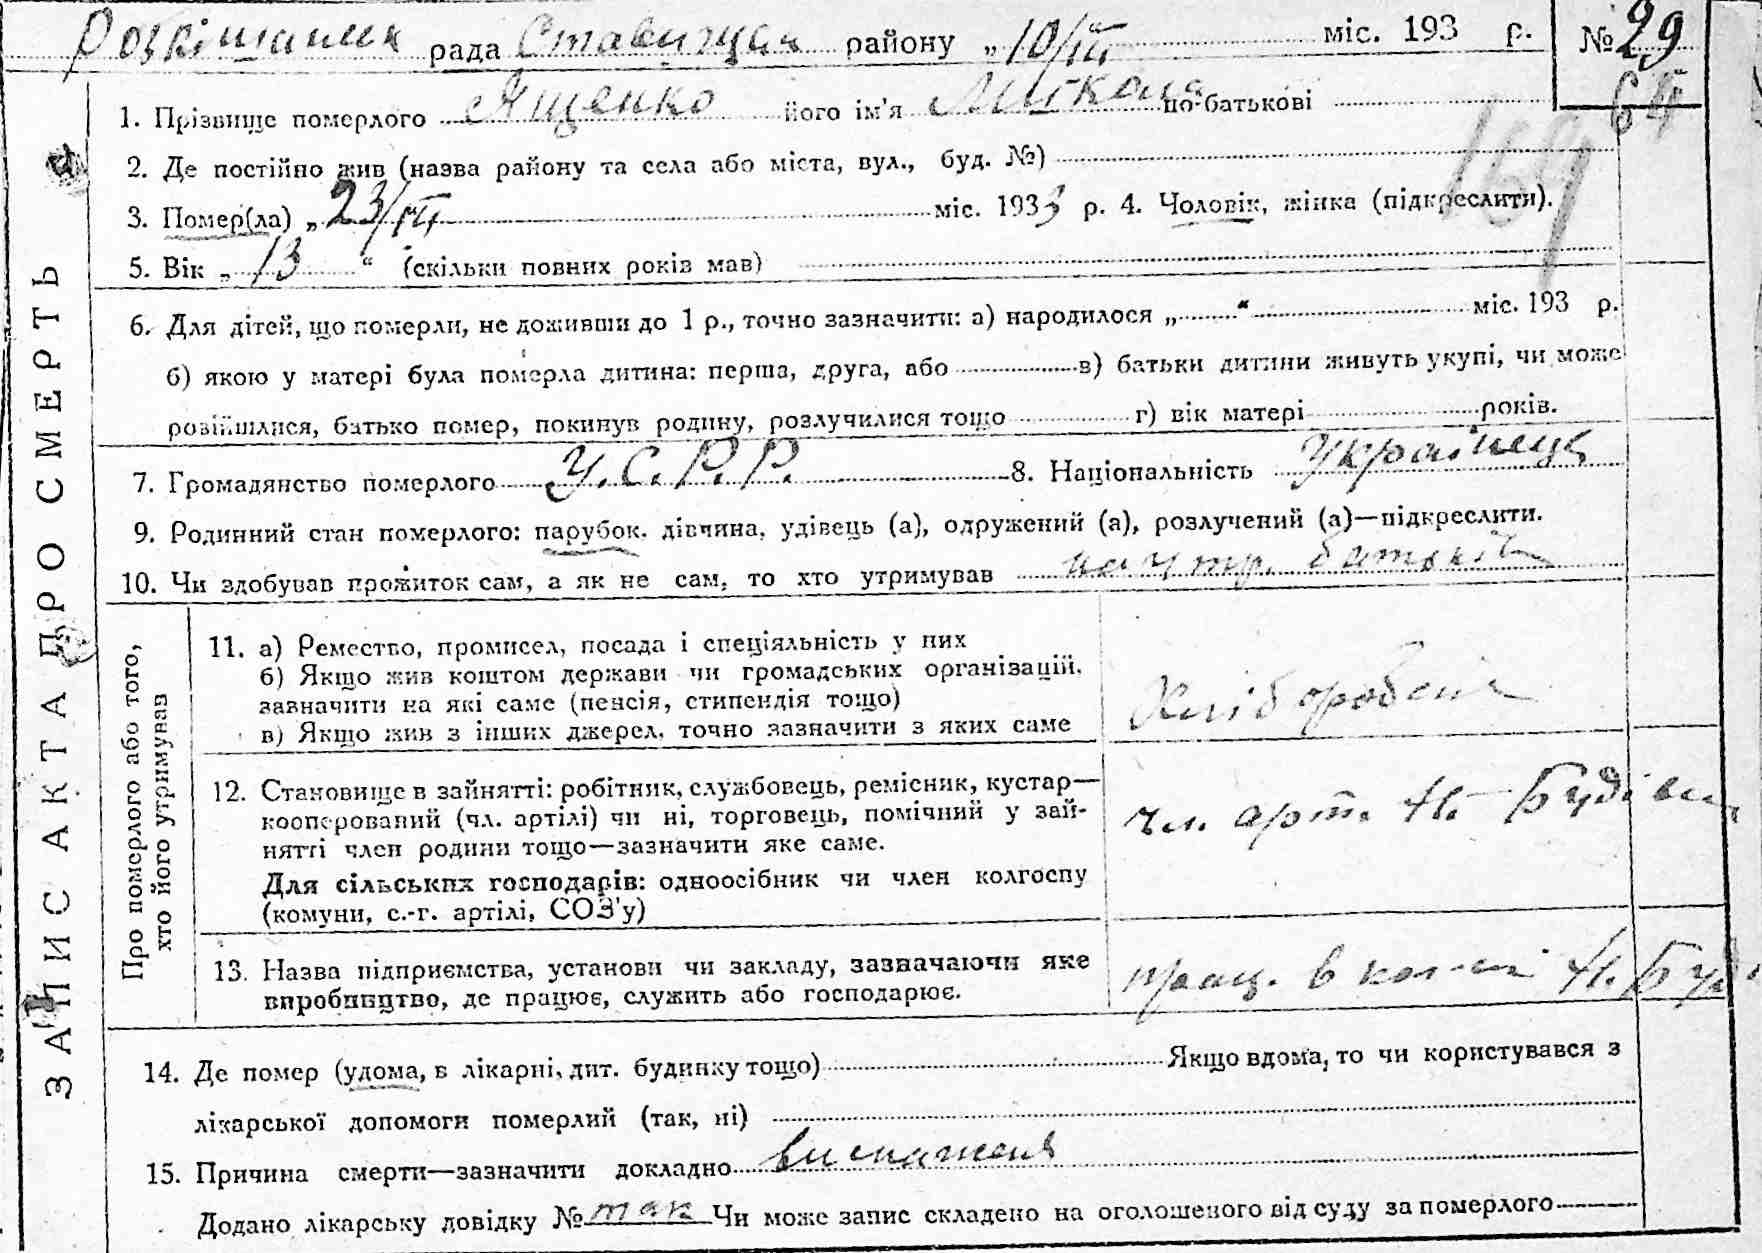 Розкішнянск рада Ставищан району „10/III міс. 193 р. № 29
64
169
1. Прізвище померлого Ященко його ім'я Микола по-батькові
2. Де постійно жив (назва району та села або міста, вул., буд. №)
3. Помер(ла) „23/III міс. 1933 р. 4. Чоловік, жінка (підкреслити).
5. Вік „13“ (скільки повних років мав)
6. Для дітей, що померли, не доживши до 1 р., точно зазначити: а) народилося „ “ міс. 193 р.
б) якою у матері була померла дитина: перша, друга, або в) батьки дитини живуть укупі, чи може
розійшлися, батько помер, покинув родину, розлучилися тощо г) вік матері років.
7. Громадянство померлого У.С.Р.Р. 8. Національність Українець
9. Родинний стан померлого: парубок, дівчина, удівець (а), одружений (а), розлучений (а)—підкреслити.
10. Чи здобував прожиток сам, а як не сам, то хто утримував на утр. батьків
ЗАПИС АКТА ПРО СМЕРТЬ
Про померлого або того,
хто його утримував
11. а) Ремество, промисел, посада і спеціяльність у них
б) Якщо жив коштом держави чи громадських організацій,
зазначити на які саме (пенсія, стипендія тощо)
в) Якщо жив з інших джерел, точно зазначити з яких саме
Хлібороб
12. Становище в зайнятті: робітник, службовець, ремісник, кустар—
кооперований (чл. артілі) чи ні, торговець, помічний у зай-
нятті член родини тощо—зазначити яке саме.
Для сільських господарів: одноосібник чи член колгоспу
(комуни, с.-г. артілі, СОЗ'у)
чл. арт. Н. Будівн
13. Назва підприємства, установи чи закладу, зазначаючи яке
виробництво, де працює, служить або господарює.
прац. в Н. Буд
14. Де помер (удома, в лікарні, дит. будинку тощо) Якщо вдома, то чи користувався з
лікарської допомоги померлий (так, ні)
15. Причина смерти—зазначити докладно виснаження
Додано лікарську довідку № так Чи може запис складено на оголошеного від суду за померлого